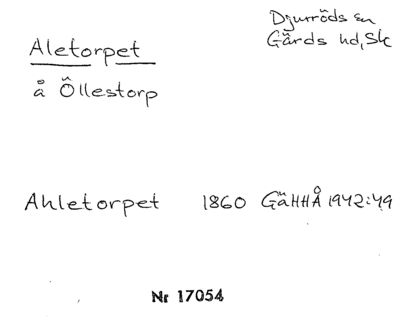 Djurröds sn
Gärds hd, Sk
Aletorpet
å Öllestorp
Ahletorpet 1860 GäHHÅ 1942:49
Nr 17054